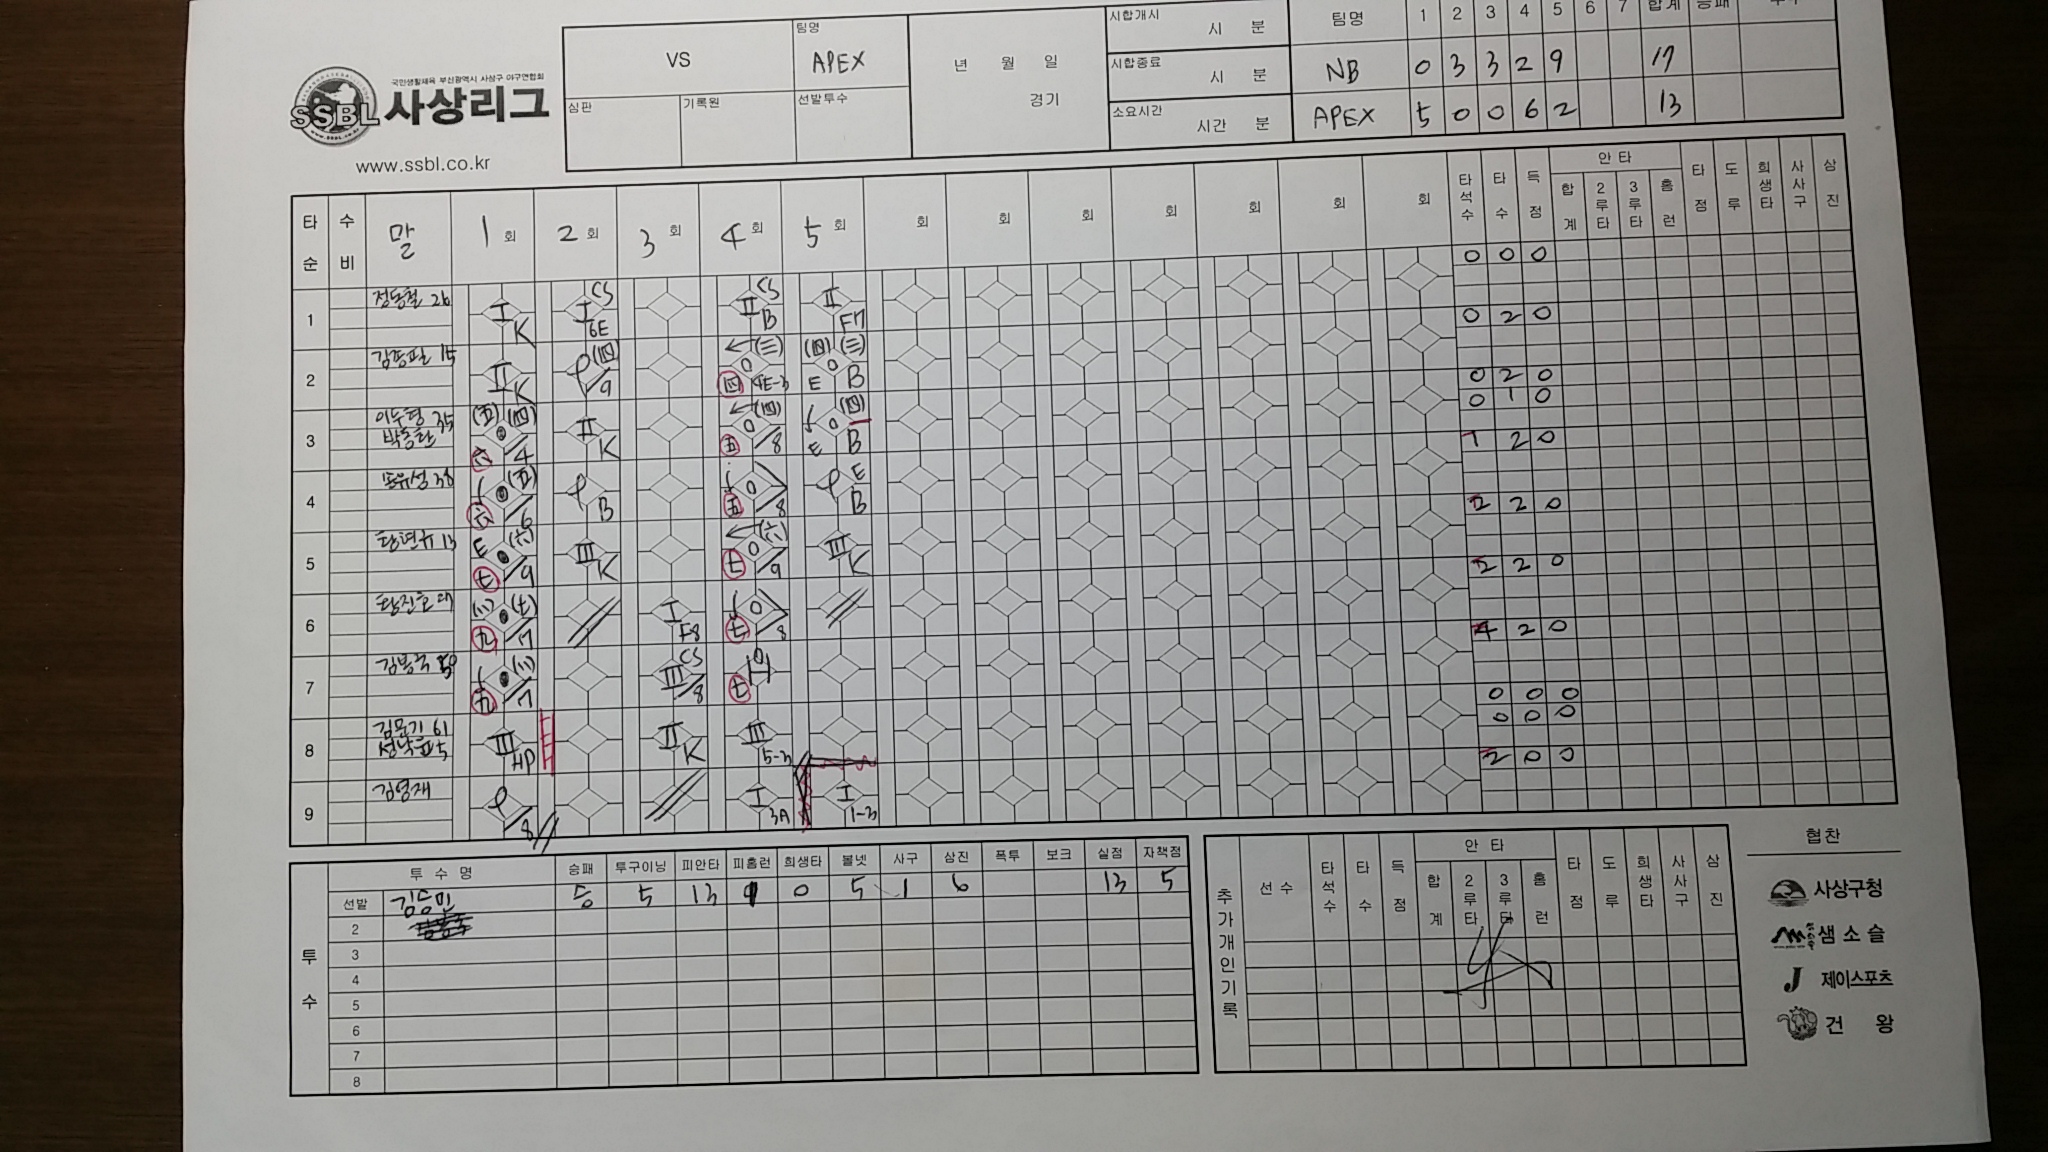 국민생활체육 부산광역시 사상구 야구연합회
SSBL 사상리그
www.ssbl.co.kr
VS
팀명
APEX
심판
기록원
선발투수
년 월 일
경기
시합개시
시 분
시합종료
시 분
소요시간
시간 분
팀명 1 2 3 4 5 6 7 합계 승패
NB 0 3 3 2 9 17
APEX 5 0 0 6 2 13
타순 수비 말 1회 2회 3회 4회 5회 회 회 회 회 회 회 회 타석수 타수 득점 안타 합계 2루타 3루타 홈런 타점 도루 희생타 사사구 삼진
0 0 0
1 정동철 26 I K CS I 6E CS II B II F7
0 2 0
2 15 II K (四) /9 (三) 四 4E-3 (四) (三) E B
0 2 0
0 1 0
3 이수형 35 (五) (四) 六 /4 II K (四) 五 /8 (四) E B
1 2 0
4 38 (五) 六 /6 B 五 /8 E B
2 2 0
5 13 E (六) 七 /9 III K (六) 七 /9 III K
2 2 0
6 (七) 九 /7 I F8 七 /8
4 2 0
7 九 /7 CS III /8 七
0 0 0
0 0 0
8 김문기 61 III HP II K III 5-3
2 0 0
9 김영재 /8 I 3A I 1-3
투수
투수명 승패 투구이닝 피안타 피홈런 희생타 볼넷 사구 삼진 폭투 보크 실점 자책점
선발 김승민 승 5 13 1 0 5 1 6 13 5
2
3
4
5
6
7
8
추가개인기록
선수 타석수 타수 득점 안타 합계 2루타 3루타 홈런 타점 도루 희생타 사사구 삼진
협찬
사상구청
샘소슬
J 제이스포츠
건왕